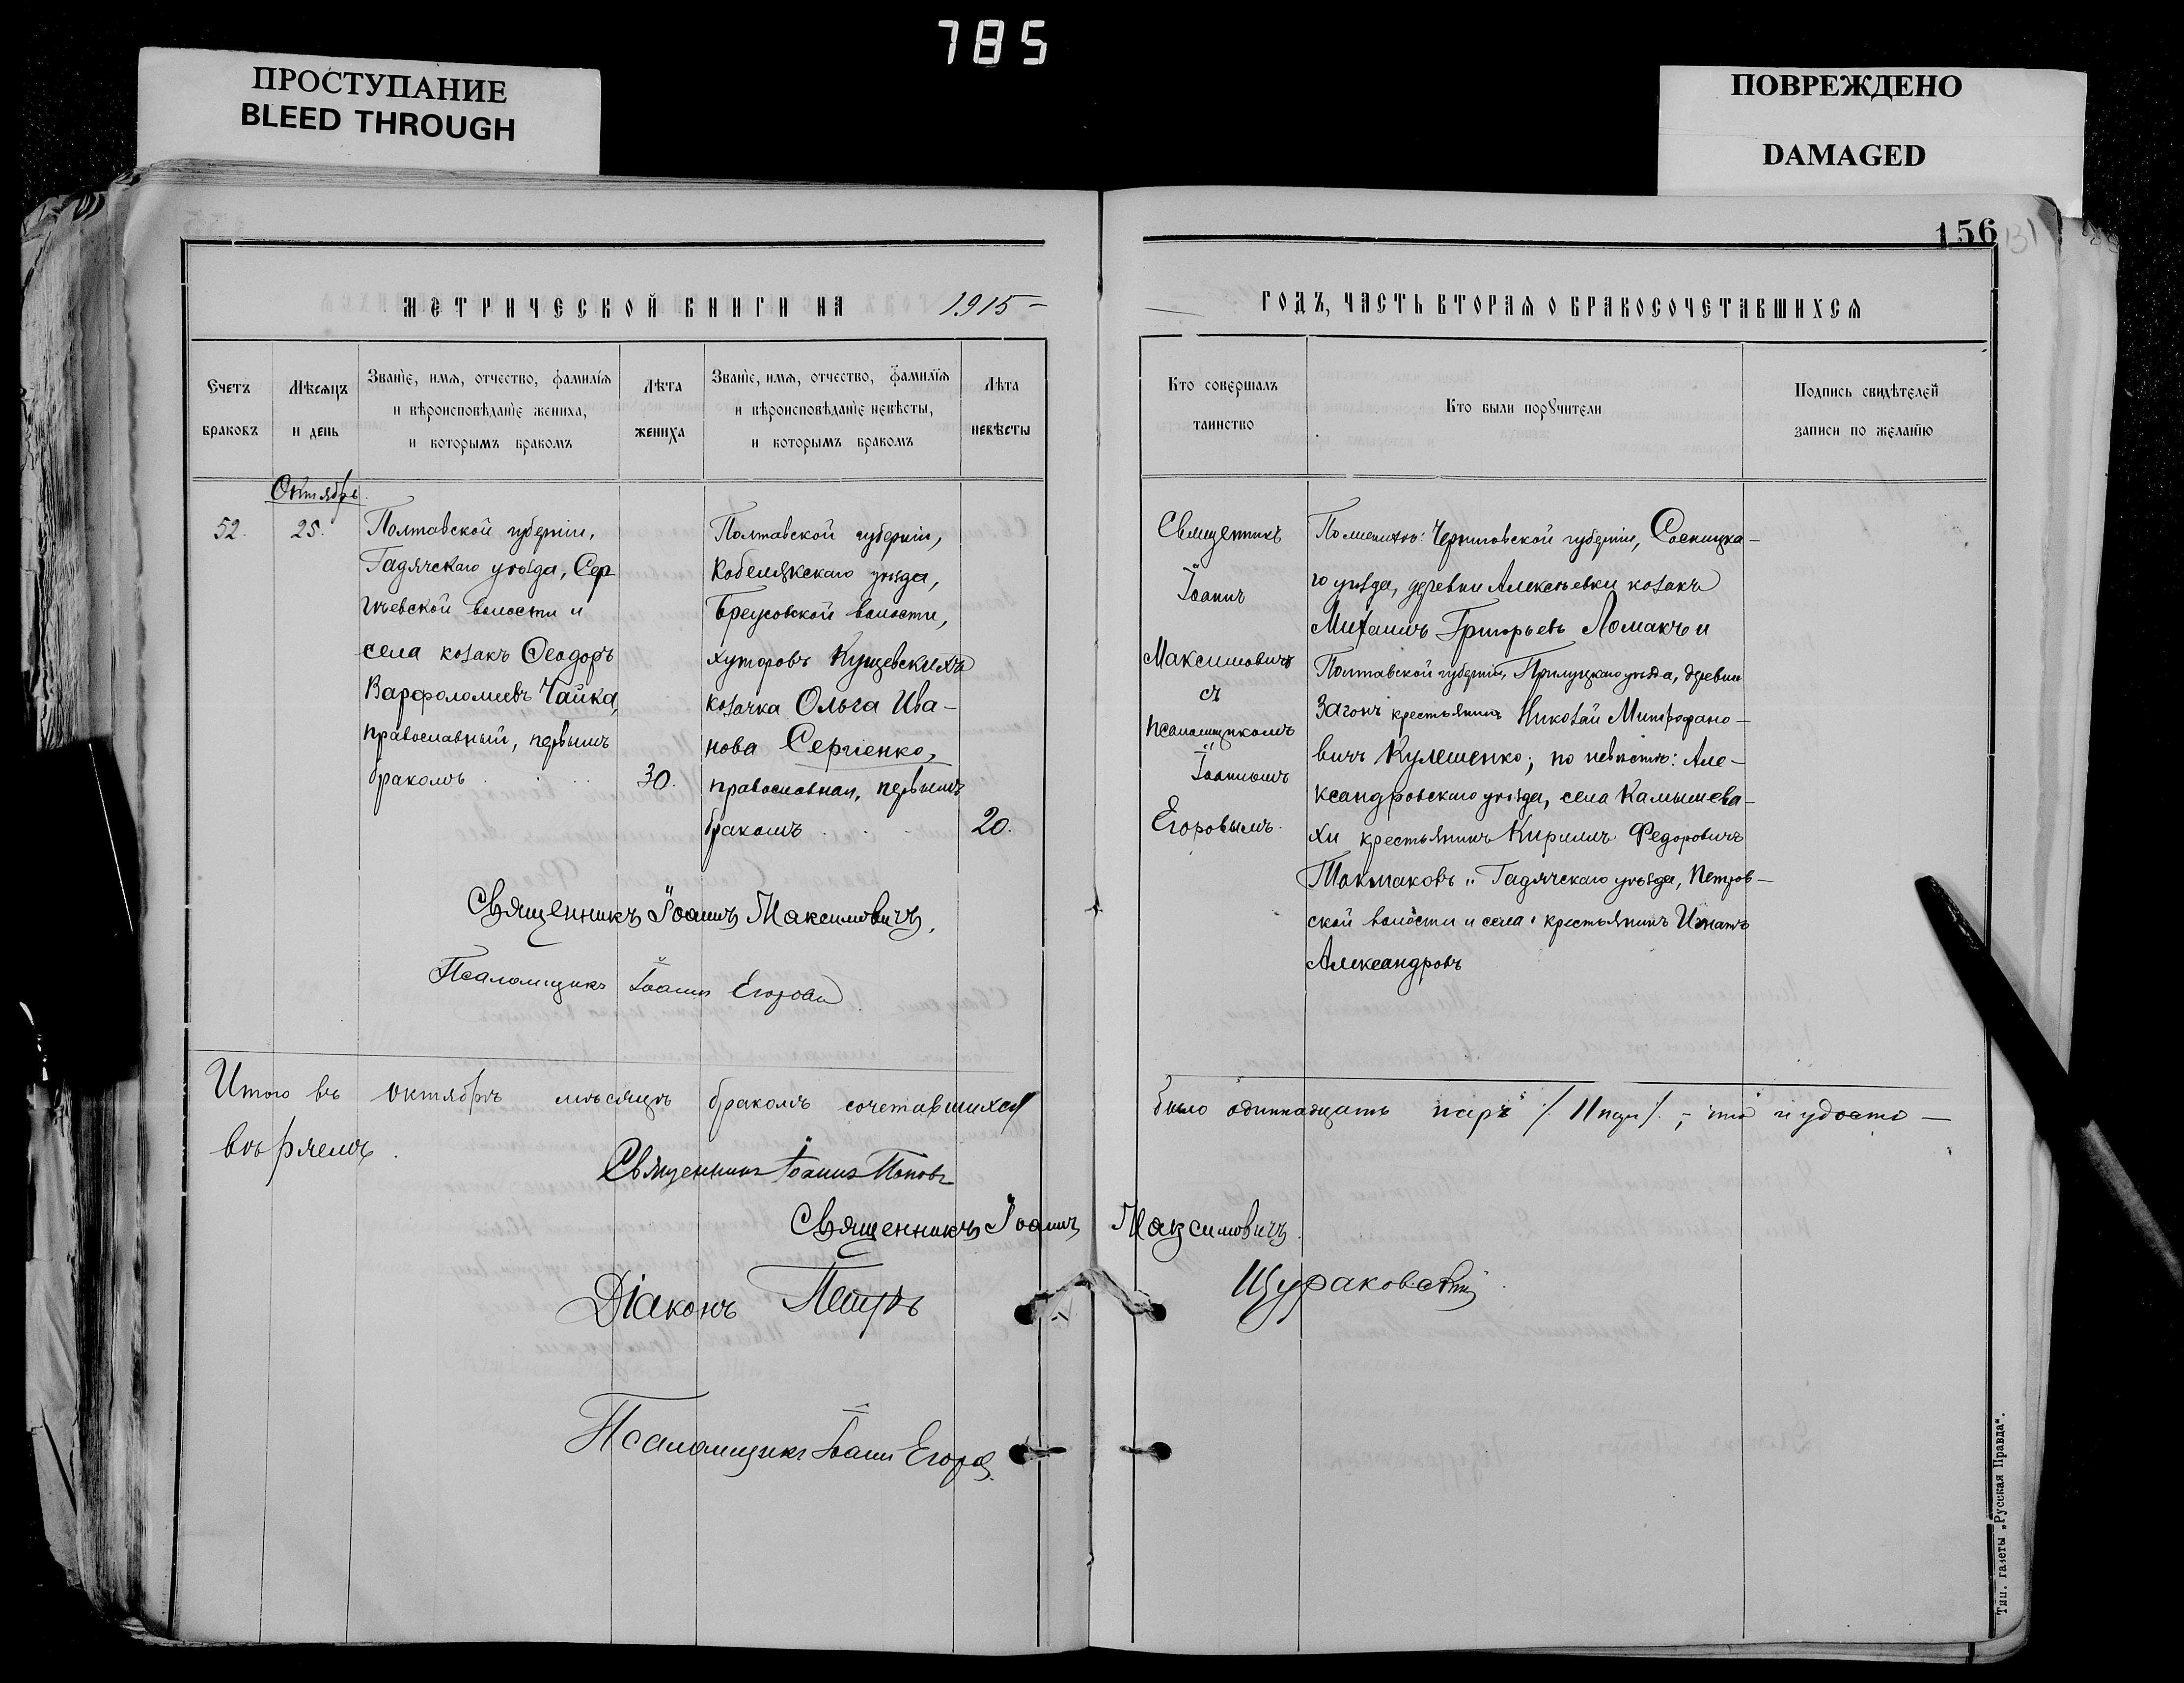 785
ПРОСТУПАНИЕ
BLEED THROUGH
ПОВРЕЖДЕНО
DAMAGED
156
131
МЕТРИЧЕСКОЙ КНИГИ НА 1915 -
Счетъ браковъ
Мѣсяцъ и день
Званіе, имя, отчество, фамилія
и вѣроисповѣданіе жениха,
и которымъ бракомъ
Лѣта жениха
Званіе, имя, отчество, фамилія
и вѣроисповѣданіе невѣсты,
и которымъ бракомъ
Лѣта невѣсты
Октябрь.
52.
25.
Полтавской губерніи,
Гадячскаго уѣзда, Сер
гіевской волости и
села козакъ Ѳеодоръ
Варфоломеевъ Чайка,
православный, первымъ
бракомъ . . . 30.
Полтавской губерніи,
Кобелякскаго уѣзда,
Бреусовской волости,
хуторовъ Кущевскихъ
козачка Ольга Ива-
нова Сергіенко,
православная, первымъ
бракомъ . . . 20.
Священникъ Іоаннъ Максимовичъ.
Псаломщикъ Іоаннъ Егоровъ
Итого въ октябрѣ мѣсяцѣ бракомъ сочетавшихся
вѣряемъ.
Священникъ Іоаннъ Поповъ
Священникъ Іоаннъ Максимовичъ.
Діаконъ Петръ Щураковскій
Псаломщикъ Іоаннъ Егоровъ
ГОДЪ, ЧАСТЬ ВТОРАЯ О БРАКОСОЧЕТАВШИХСЯ
Кто совершалъ
таинство
Кто были поручители
Подпись свидѣтелей
записи по желанію
Священникъ
Іоаннъ
Максимовичъ
съ
псаломщикомъ
Іоанномъ
Егоровымъ.
По женихѣ: Черниговской губерніи, Сосницка-
го уѣзда, деревни Алексѣевки козакъ
Михаилъ Григорьевъ Ломакъ и
Полтавской губерніи, Прилуцкаго уѣзда, деревни
Загонъ крестьянинъ Николай Митрофано-
вичъ Кулешенко; по невѣстѣ: Але-
ксандровскаго уѣзда, села Камышева-
хи крестьянинъ Кириллъ Федоровичъ
Токмаковъ и Гадячскаго уѣзда, Петров-
ской волости и села крестьянинъ Игнатъ
Александровъ
было одиннадцать паръ /11 паръ/, - что и удосто-
Тип. газеты „Русская Правда".